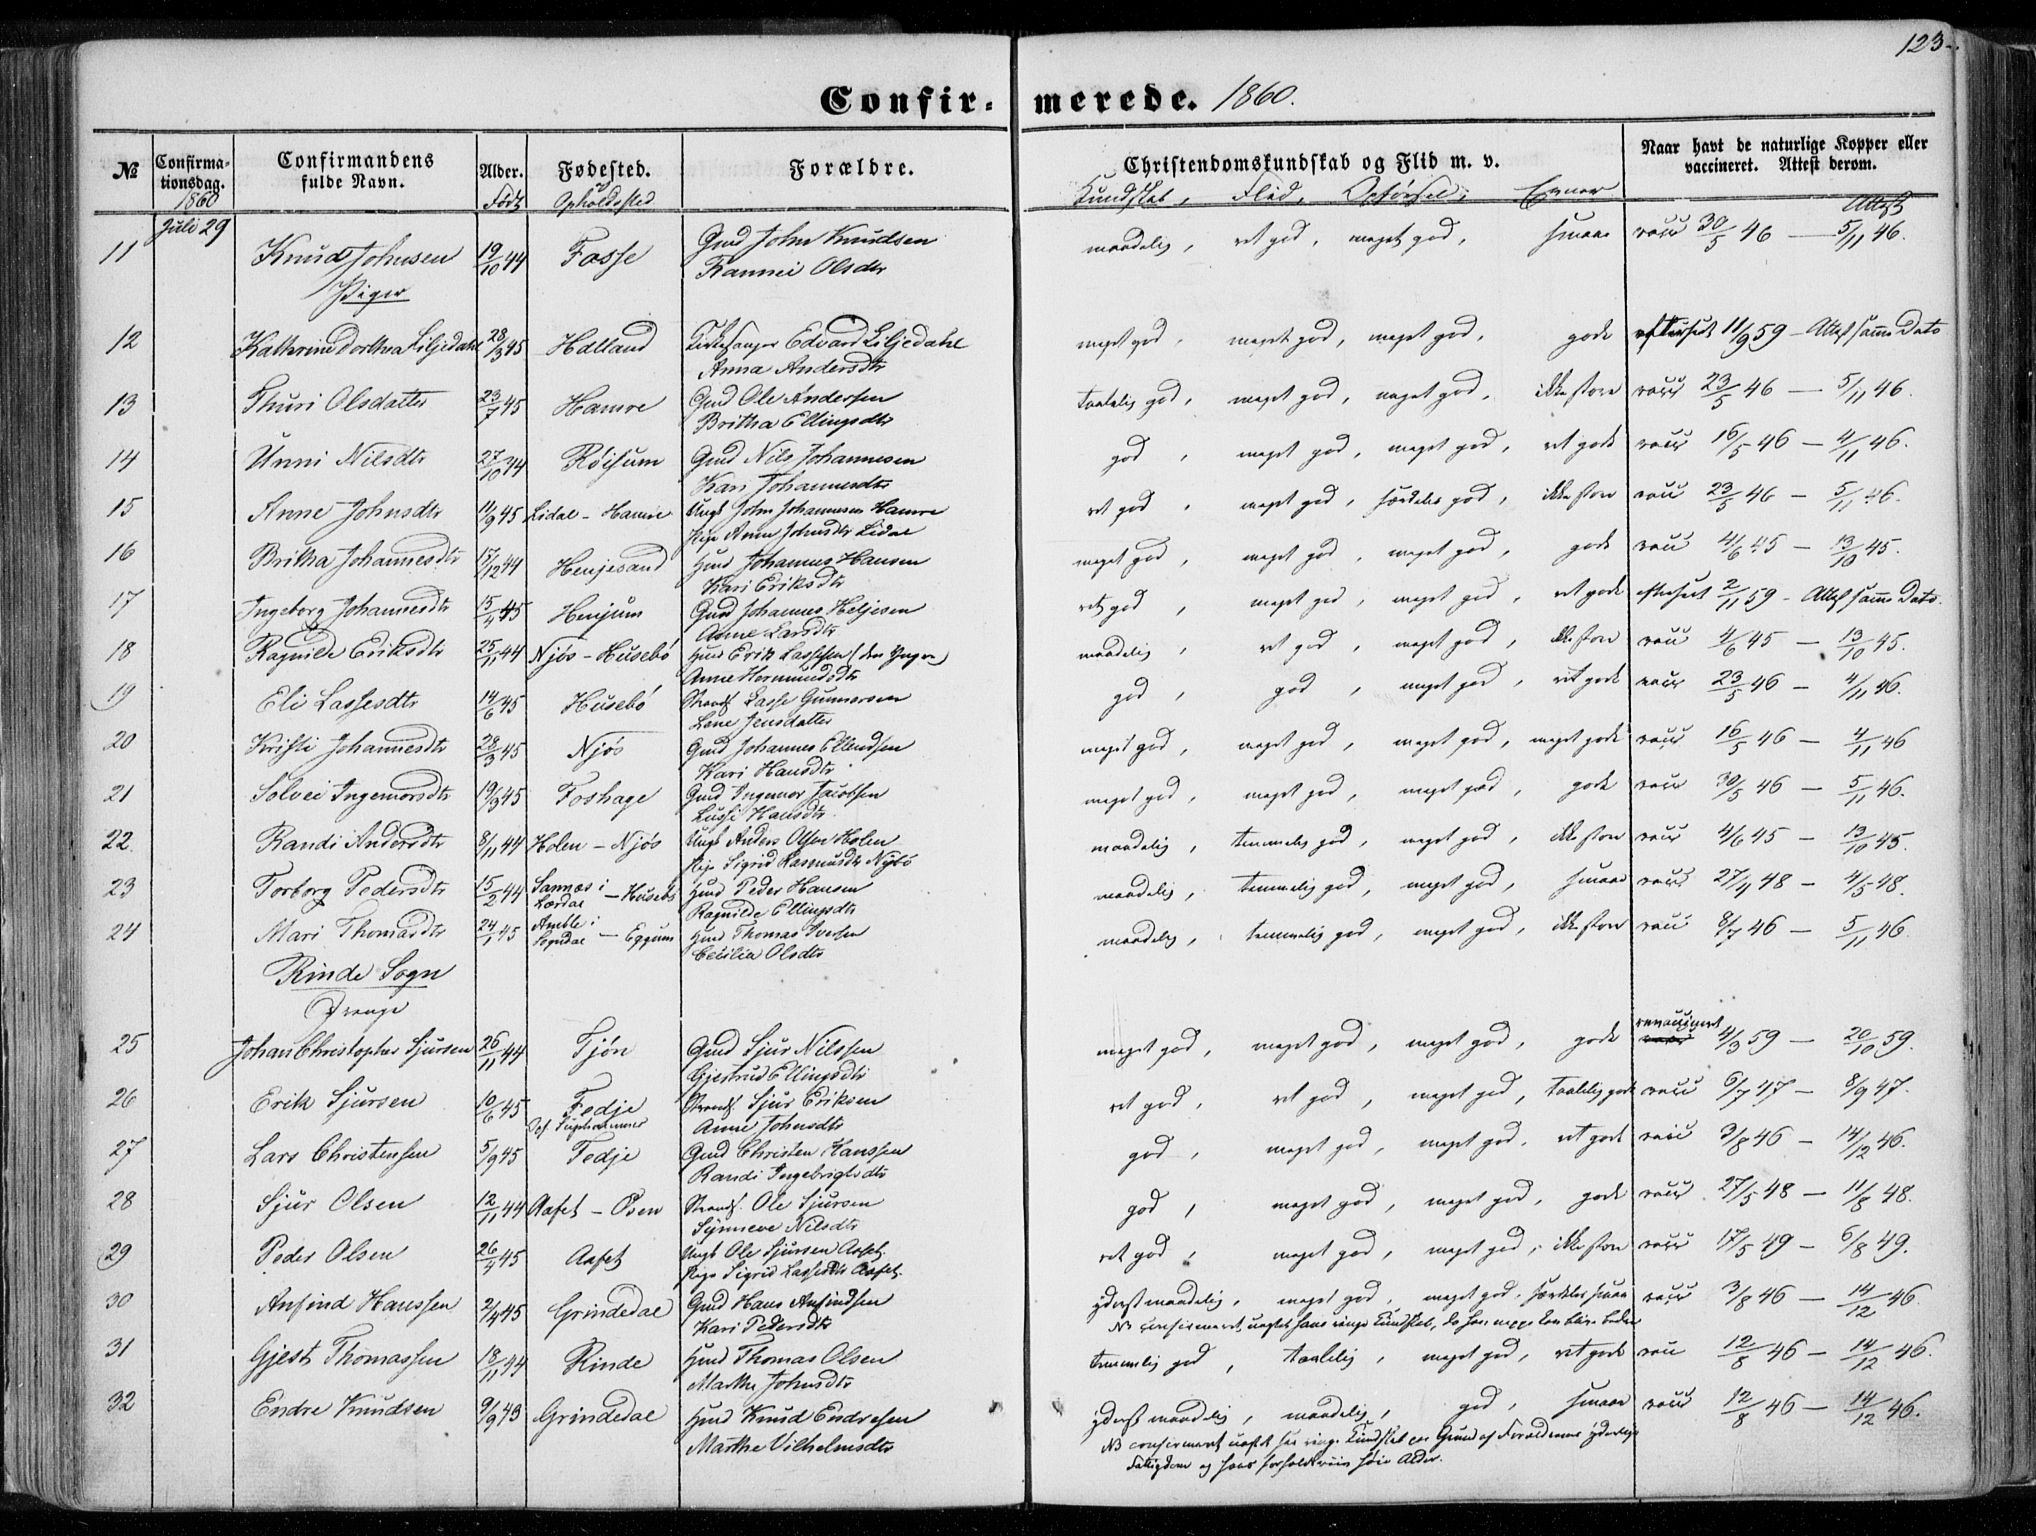 123.
Confir- merede. 1860.
№ Confirmationsdag. Confirmandens fulde Navn. Alder. Fødested. Forældre. Christendomskundskab og Flid m. v. Naar havt de naturlige Kopper eller vaccineret. Attest derom.
1860 Født Opholdssted Kundskab, Flid, Opførsel, Evner Attest
Juli 29
11 Knud Johnsen 19/10 44 Fosse Gmd John Knudsen maadelig, ret god, meget god, smaae vacc 30/5 46 — 5/11 46.
Rannei Olsdtr
Piger
12 Kathrine Dorthea Liljedahl 28/3 45 Halland Kirkesanger Edvard Liljedahl meget god, meget god, meget god, gode efterseet 11/9 59 - Attest samme Dato
Anna Andersdtr
13 Thuri Olsdatter 23/7 45 Hamre Gmd Ole Andersen taalelig god, meget god, meget god, ikke store vacc 23/5 46 — 5/11 46.
Britha Ellingsdtr
14 Unni Nilsdtr 27/10 44 Røisum Gmd Nils Johannesen god, meget god, meget god, ret gode vacc 16/5 46 — 4/11 46.
Kari Johannesdtr
15 Anne Johnsdtr 11/9 45 Lidal - Hamre Ungk John Johannesen Hamre ret god, meget god, særdeles god, ikke store vacc 23/5 46 — 5/11 46.
Pige Anne Johnsdtr Lidal
16 Britha Johannesdtr 15/12 44 Henjesand Hmd Johannes Hansen meget god, meget god, meget god, gode vacc 4/6 45 — 13/10 45.
Kari Eriksdtr
17 Ingeborg Johannesdtr 15/4 45 Henjum Gmd Johannes Heljesen ret god, meget god, meget god, ret gode efterseet 2/11 59 - Attest samme Dato.
Anne Larsdtr
18 Ragnilde Eriksdtr 25/11 44 Njøs - Husebø Hmd Erik Lassesen (den Yngre) maadelig, ret god, meget god, ikke store vacc 4/6 45 — 13/10 45.
Anne Hermundsdtr
19 Eli Lassesdtr 14/6 45 Husebø Strands. Lasse Gunnarsen god, god, meget god, ret gode vacc 23/5 46 — 4/11 46.
Lene Jensdatter
20 Kristi Johannesdtr 28/3 45 Njøs Gmd Johannes Ellendsen meget god, meget god, meget god, meget gode vacc 16/5 46 — 4/11 46
Kari Hansdtr
21 Solvei Ingemorsdtr 19/3 45 Foshage Gmd Ingemor Jacobsen meget god, meget god, meget god, gode vacc 30/5 46 — 5/11 46.
Lussi Hansdtr
22. Randi Andersdtr 8/11 44 Holen - Njøs Ungk Anders Olsen Holen maadelig, temmelig god, meget god, ikke store vacc 4/6 45 — 13/10 45.
Pige Sigrid Rasmusdtr Nybø
23 Torborg Pedersdtr 15/2 44 Sannæs i Lærdal - Husebø Hmd Peder Hansen maadelig, temmelig god, meget god, smaae vacc 27/4 48 — 4/5 48.
Ragnilde Ellingsdtr
24 Mari Thomasdtr 24/1 45 Amble i Sogndal - Eggum Hmd Thomas Iversen maadelig, temmelig god, meget god, ikke store vacc 8/7 46 — 5/11 46.
Cecilia Olsdtr
Rinde Sogn
Drenge
25 Johan Christopher Sjursen 26/11 44 Tjøn Gmd Sjur Nilssen meget god, meget god, meget god, gode revaccineret 4/3 59 — 20/10 59.
Gjertrud Ellingsdtr
26 Erik Sjursen 10/6 45 Fedje Strands. Sjur Eriksen ret god, ret god, meget god, taalelig gode vacc 6/7 47 — 8/9 47.
Anne Johnsdtr
27 Lars Christensen 5/9 45 Fedje Gmd Christen Hanssen god, meget god, meget god, ret gode vacc 3/8 46 — 14/12 46.
Randi Ingebrigtsdtr
28 Sjur Olsen 12/11 44 Aafet - Osen Strands. Ole Sjursen god, meget god, meget god, gode vacc 27/5 48 — 11/8 48.
Synneve Nilsdtr
29 Peder Olsen 26/4 45 Aafet Ungk Ole Sjursen Aafet. ret god, meget god, meget god, ikke store vacc 17/5 49 — 6/8 49.
Pige Sigrid Lassesdtr Aafet.
30 Anfind Hanssen 2/4 45 Grindedal Gmd Hans Anfindsen yderst maadelig, meget god, meget god, særdeles smaae vacc 3/8 46 — 14/12 46.
Kari Pedersdtr NB confirmeret uagtet hans ringe Kundskab, da han neppe kan blive bedre
31 Gjest Thomassen 18/11 44 Rinde Hmd Thomas Olsen temmelig god, taalelig, meget god, ret gode vacc 12/8 46 — 14/12 46.
Marthe Johnsdtr
32 Endre Knudsen 9/9 43 Grindedal Hmd Knud Endresen yderst maadelig, maadelig, god, smaae vacc 12/8 46 — 14/12 46.
Marthe Vilhelmsdtr NB confirmeret uagtet hans ringe Kundskab paa Grund af Forældrenes yderlige
Fattigdom og hans forholdsviis høie Alder.